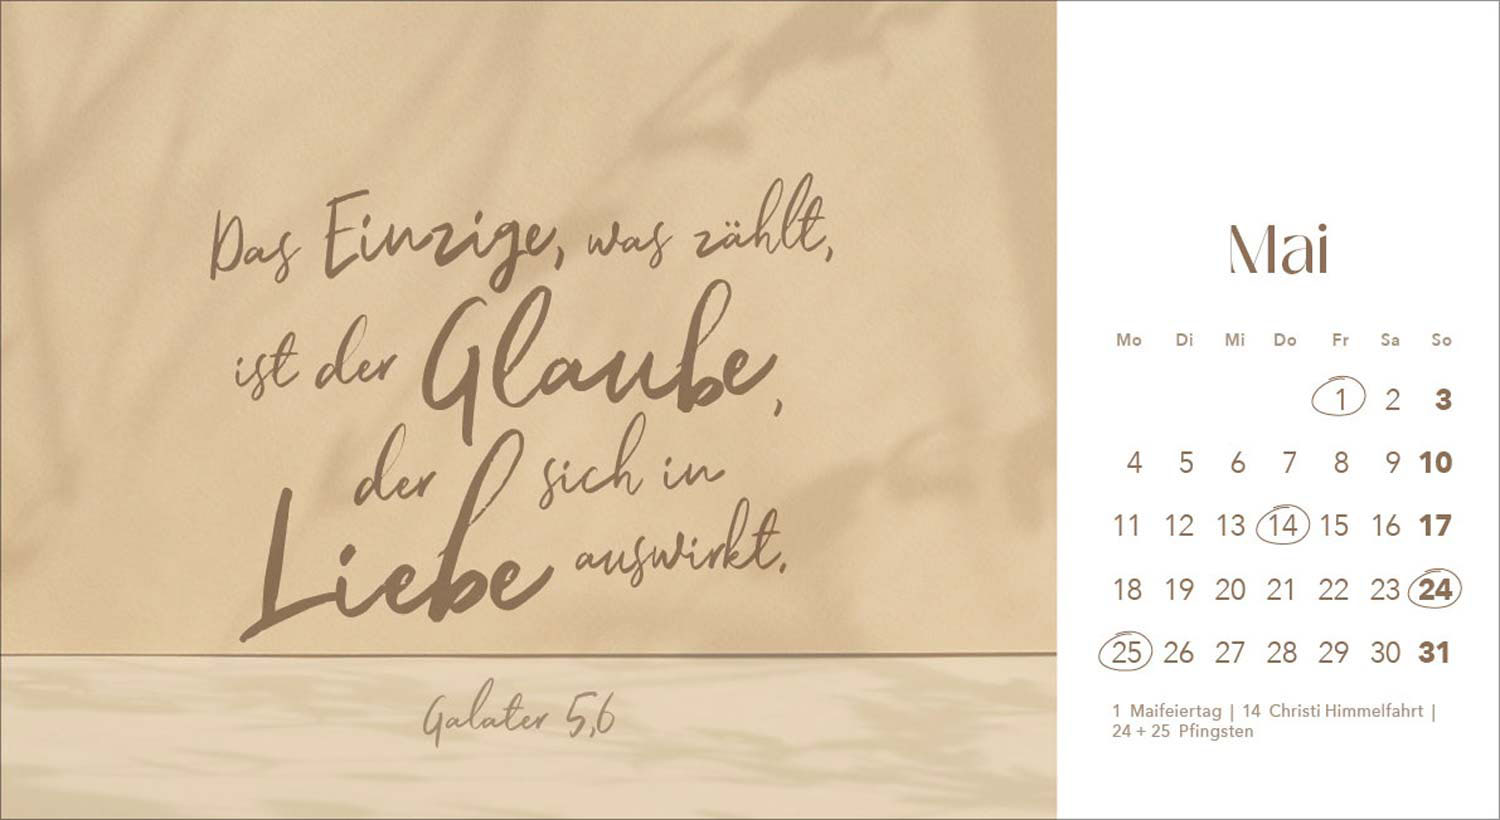 Das Einzige, was zählt,
ist der Glaube,
der sich in
Liebe auswirkt.
Galater 5,6
Mai
Mo Di Mi Do Fr Sa So
1 2 3
4 5 6 7 8 9 10
11 12 13 14 15 16 17
18 19 20 21 22 23 24
25 26 27 28 29 30 31
1 Maifeiertag | 14 Christi Himmelfahrt |
24 + 25 Pfingsten